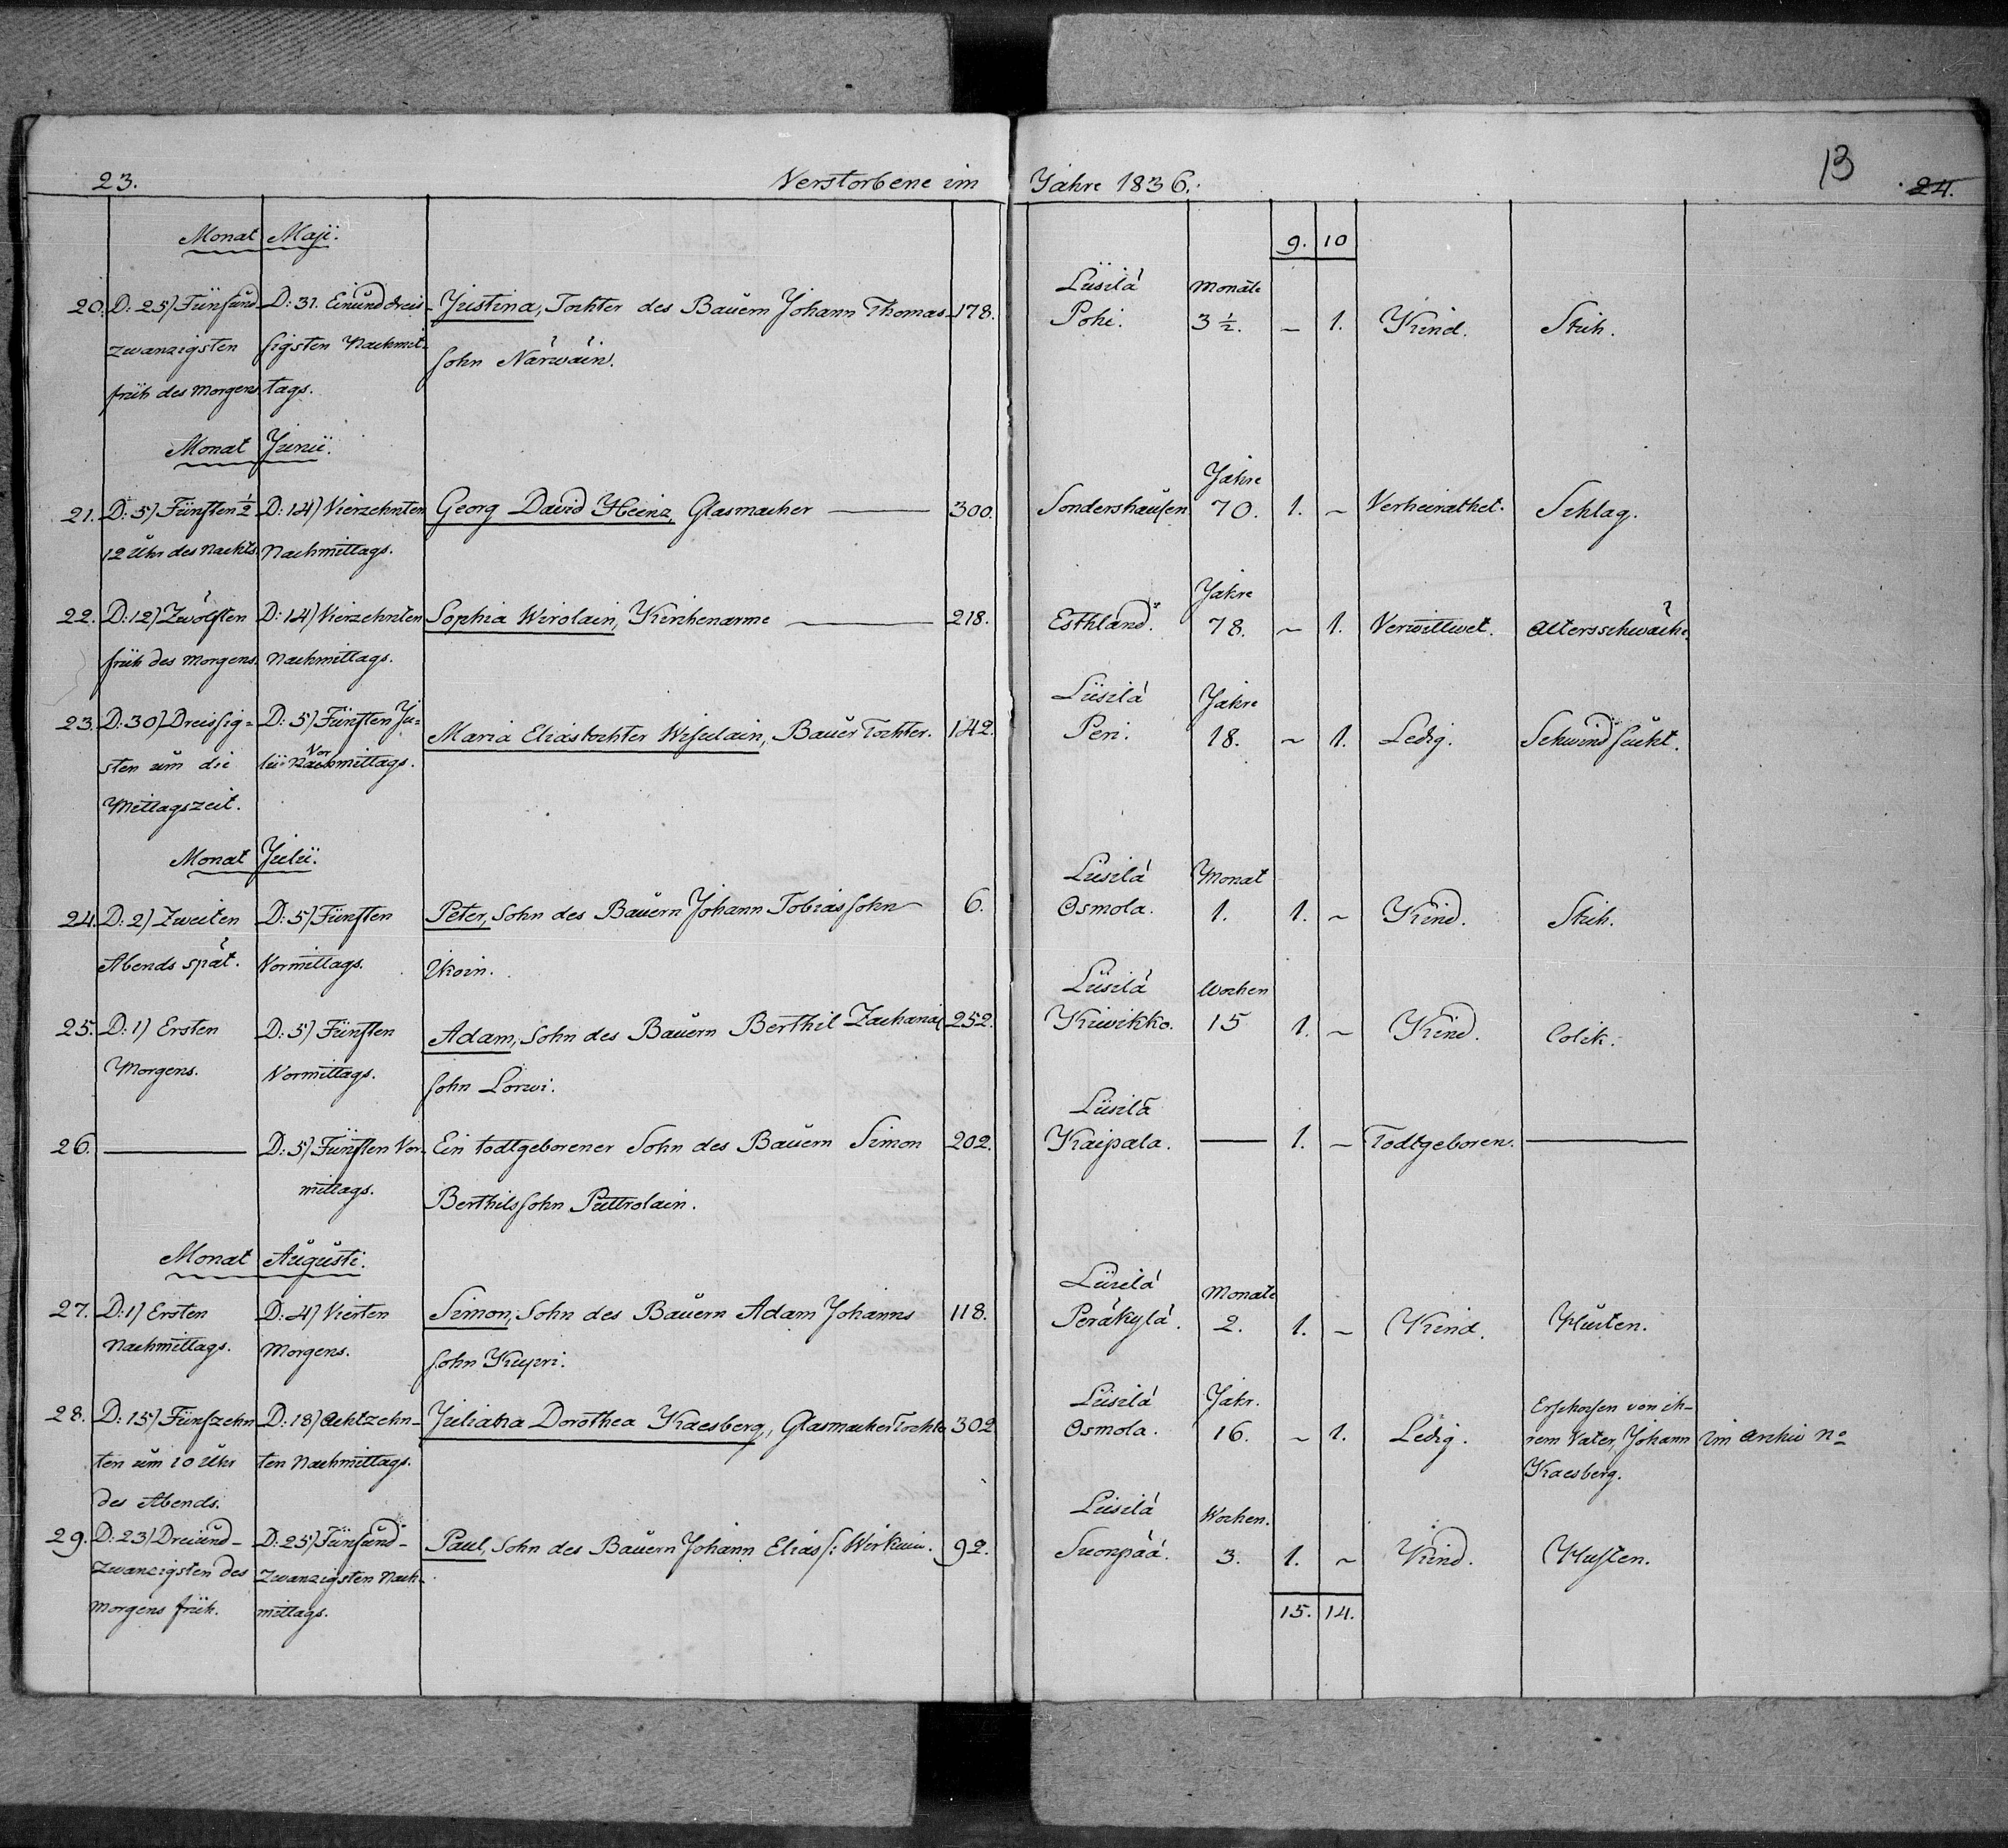 23. Verstorbene im Jahre 1836. 13 24.
Monat Maji.
9. 10
20. D: 25) Fünfund- D: 31. Einunddreis- Justina, Tochter des Bauern Johann Thomas- 178. Lüsilä Monate
zwanzigsten sigsten Nachmit- sohn Närwäin. Pohi. 3 ½. ~ 1. Kind. Stich.
früh des Morgens. tags.
Monat Junii.
Jahre
21. D: 5) Fünften ½ D: 14) Vierzehnten Georg David Heinz, Glasmacher 300. Sondershausen 70. 1. ~ Verheirathet. Schlag.
12 Uhr des Nachts. Nachmittags.
Jahre
22. D: 12) Zwölften D: 14) Vierzehnten Sophia Wirolain, Kirchenarme 218. Esthland. 78. ~ 1. Verwittwet. Altersschwäche
früh des Morgens. Nachmittags.
Lüsilä Jahre
23. D: 30) Dreissig= D: 5) Fünften Ju= Maria Eliastochter Wisulain, Bauer Tochter. 142. Peri. 18. ~ 1. Ledig. Schwindsucht.
sten um die lii Vor Nachmittags.
Mittagszeit.
Monat Julii.
Lüsilä Monat
24. D: 2) Zweiten D: 5) Fünften Peter, Sohn des Bauern Johann Tobiassohn 6. Osmola. 1. 1. ~ Kind. Stich.
Abends spät. Vormittags. Ikoin.
Lüsilä Wochen
25. D: 1) Ersten D: 5) Fünften Adam, Sohn des Bauern Berthil Zacharias 252. Kiwikko. 15 1. ~ Kind. Colik.
Morgens. Vormittags. sohn Lorwi.
Lüsilä
26. D: 5) Fünften Vor- Ein todtgeborener Sohn des Bauern Simon 202. Kaipala. 1. ~ Todtgeboren.
mittags. Berthilssohn Puttrolain.
Monat Augusti.
Lüsilä Monate
27. D: 1) Ersten D: 4) Vierten Simon, Sohn des Bauern Adam Johanns 118. Peräkylä. 2. 1. ~ Kind. Husten.
Nachmittags. Morgens. sohn Kupri.
Lüsilä Jahr. Erschossen von ih-
28. D: 15) Fünfzehn D: 18) Achtzehn- Juliana Dorothea Kaesberg, Glasmacher Tochte 302 Osmola. 16. ~ 1. Ledig. rem Vater, Johann im Archiv No
ten um 10 Uhr ten Nachmittags. Kaesberg.
des Abends.
Lüsilä Wochen.
29. D: 23) Dreiund- D: 25) Fünfund- Paul, Sohn des Bauern Johann Elias s: Wirkuin. 92. Suonpää. 3. 1. ~ Kind. Husten.
zwanzigsten des zwanzigsten Nach-
Morgens früh. mittags.
15. 14.